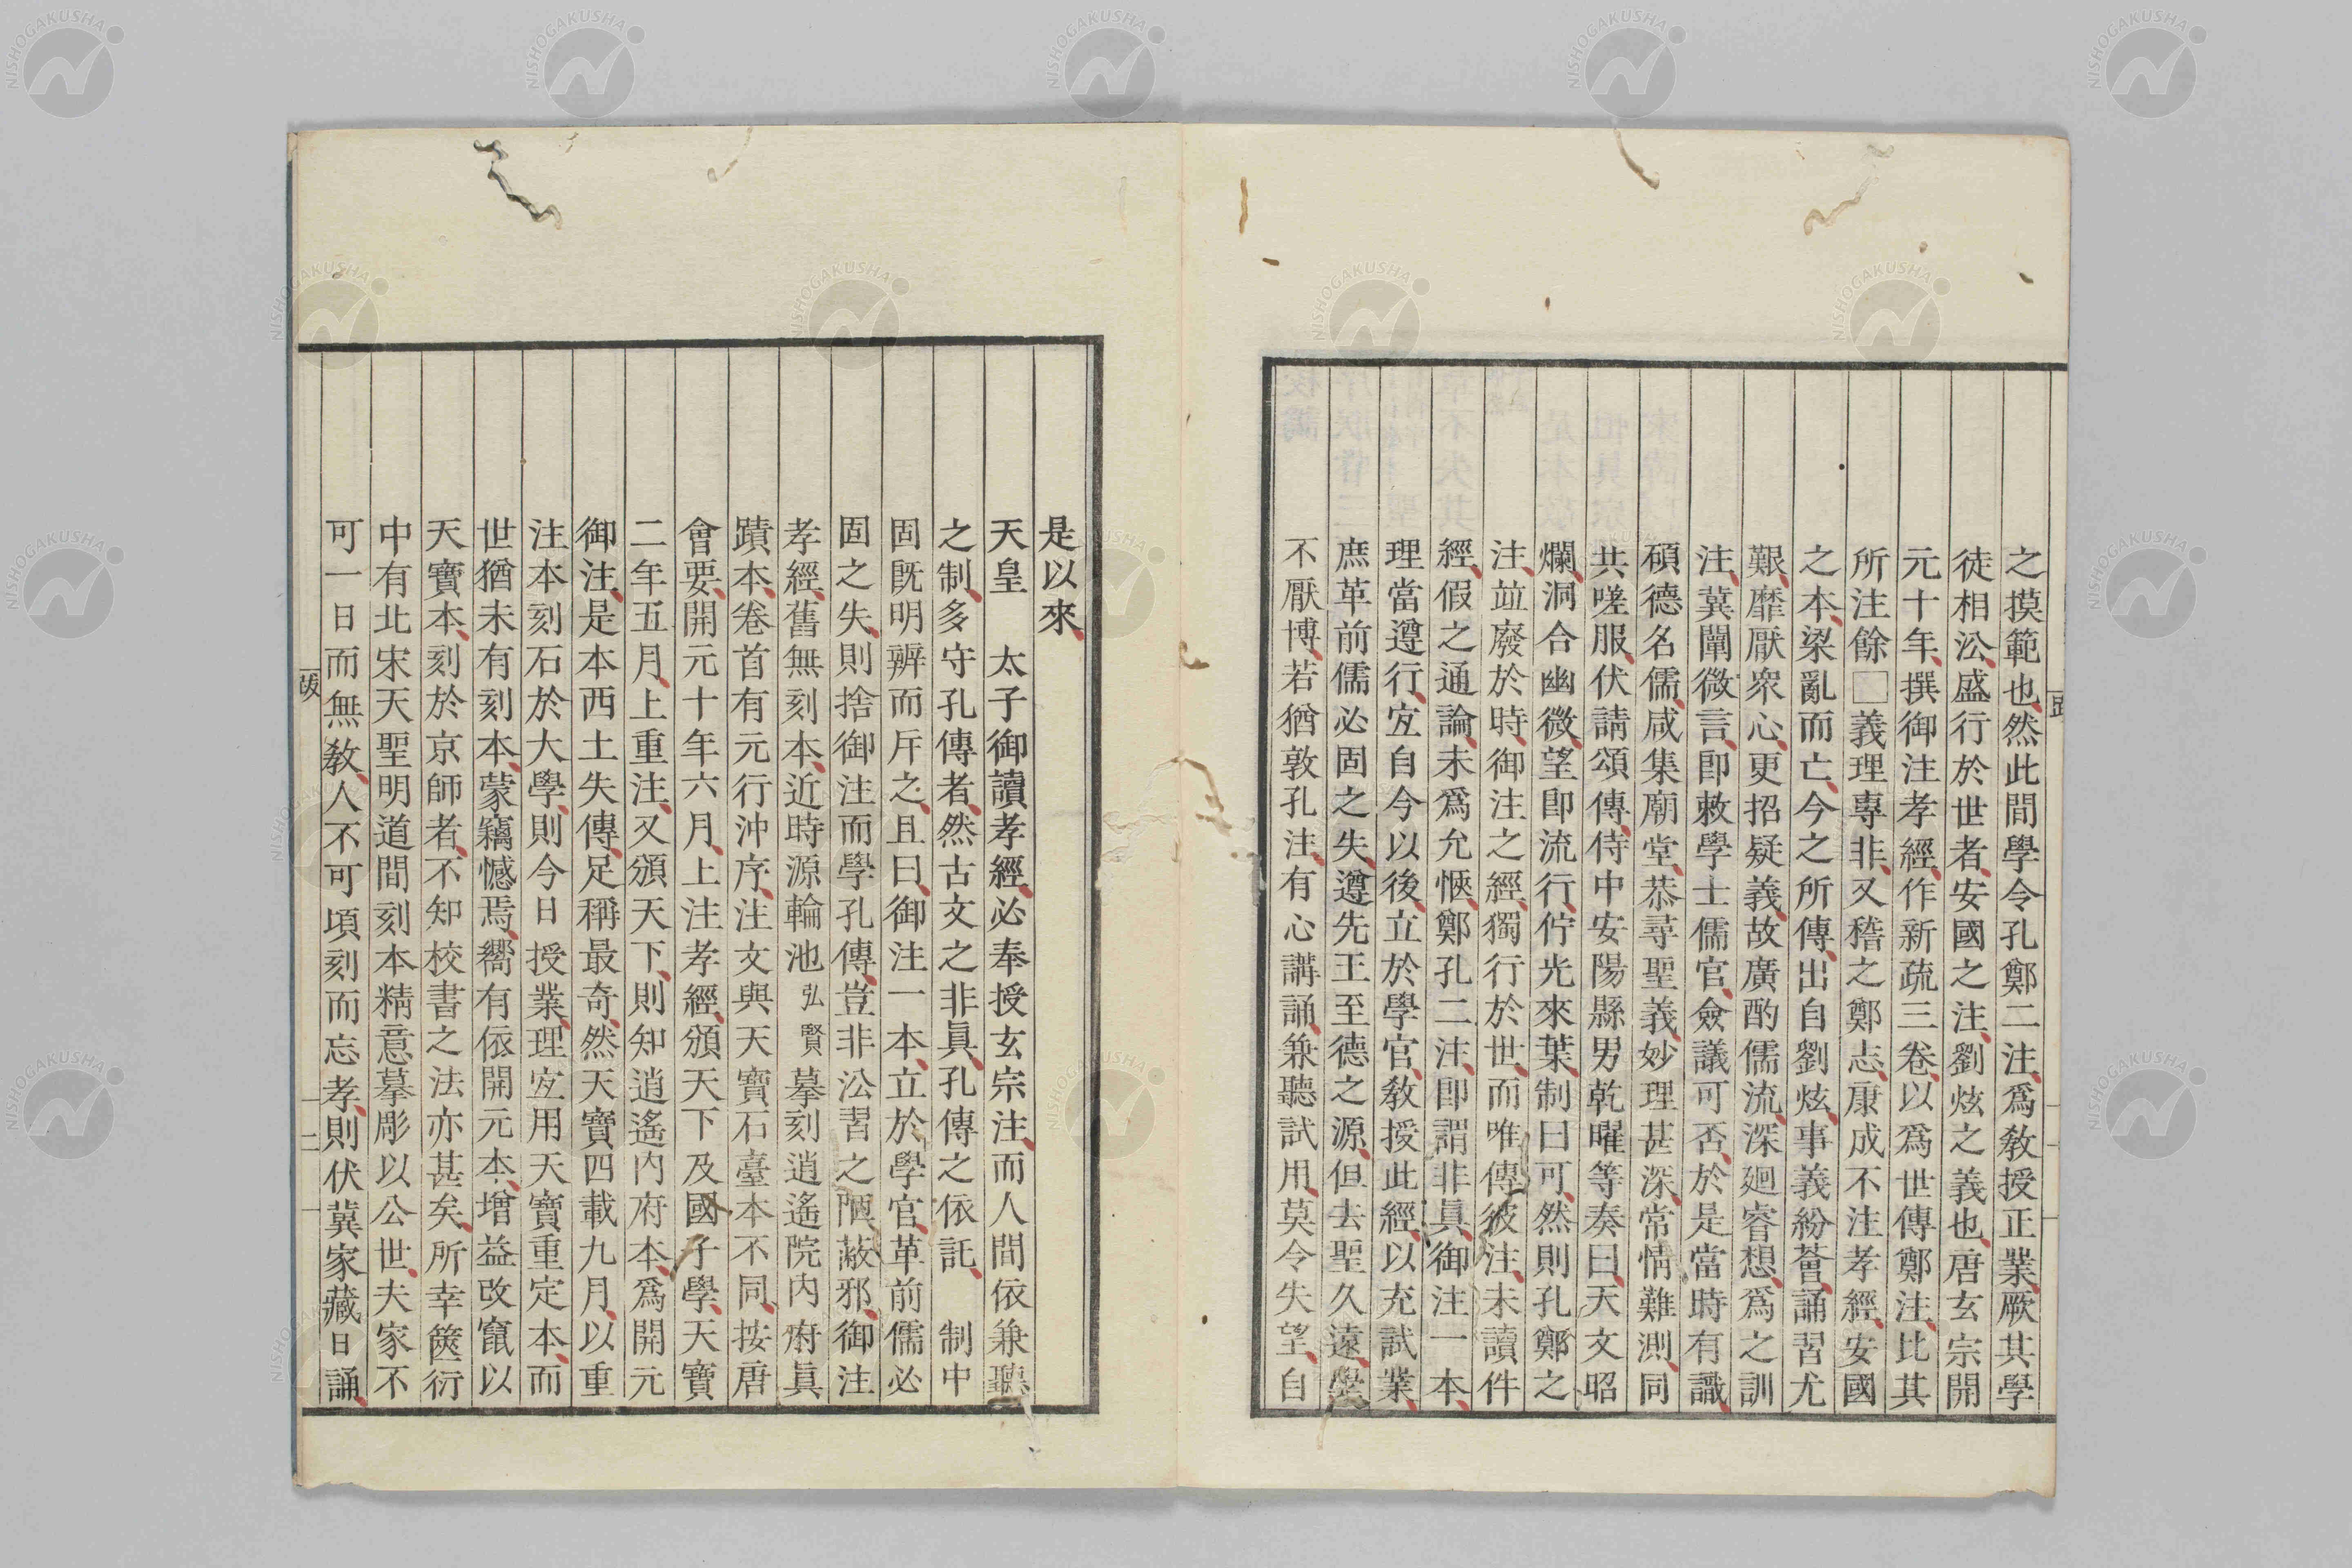 之摸範也然此間學令孔鄭二注爲教授正業厥其學
徒相㳂盛行於世者安國之注劉炫之義也唐玄宗開
元十年撰御注孝經作新疏三卷以爲世傳鄭注比其
所注餘□義理專非又稽之鄭志康成不注孝經安國
之本梁亂而亡今之所傳出自劉炫事義紛薈誦習尤
艱靡厭衆心更招疑義故廣酌儒流深廻睿想爲之訓
注冀闡微言卽敕學士儒官僉議可否於是當時有識
碩德名儒咸集廟堂恭尋聖義妙理甚深常情難測同
共嗟服伏請頌傳侍中安陽縣男乾曜等奏曰天文昭
爛洞合幽微望卽流行佇光來葉制曰可然則孔鄭之
注竝廢於時御注之經獨行於世而唯傳彼注未讀件
經假之通論未爲允愜鄭孔二注卽謂非眞御注一本
理當遵行宐自今以後立於學官敎授此經以充試業
庶革前儒必固之失遵先王至德之源但去聖久遠學
不厭博若猶敦孔注有心講誦兼聽試用莫令失望自
是以來
天皇　太子御讀孝經必奉授玄宗注而人間依兼聽
之制多守孔傳者然古文之非眞孔傳之依託　制中
固旣明辨而斥之且曰御注一本立於學官革前儒必
固之失則捨御注而學孔傳豈非㳂習之陋蔽邪御注
孝經舊無刻本近時源輪池弘賢摹刻逍遙院內府眞
蹟本卷首有元行沖序注文與天寶石臺本不同按唐
會要開元十年六月上注孝經頒天下及國子學天寶
二年五月上重注又頒天下則知逍遙內府本爲開元
御注是本西土失傳足稱最奇然天寶四載九月以重
注本刻石於大學則今日授業理宐用天寶重定本而
世猶未有刻本蒙竊憾焉嚮有依開元本增益改竄以
天寶本刻於京師者不知校書之法亦甚矣所幸篋衍
中有北宋天聖明道間刻本精意摹彫以公世夫家不
可一日而無敎人不可頃刻而忘孝則伏冀家藏日誦
跋
二